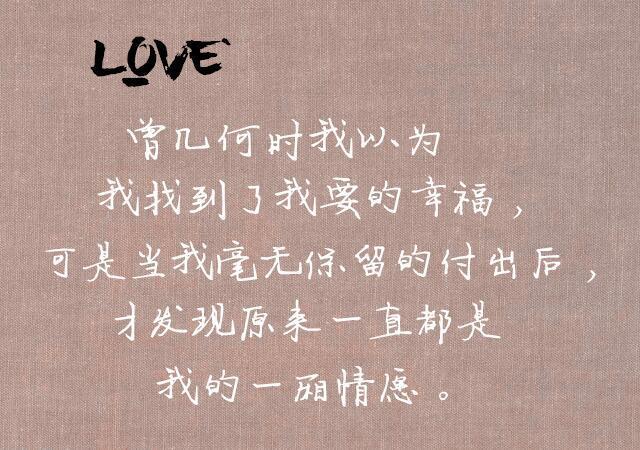 LOVE
曾几何时我以为
我找到了我要的幸福，
可是当我毫无保留的付出后，
才发现原来一直都是
我的一厢情愿。